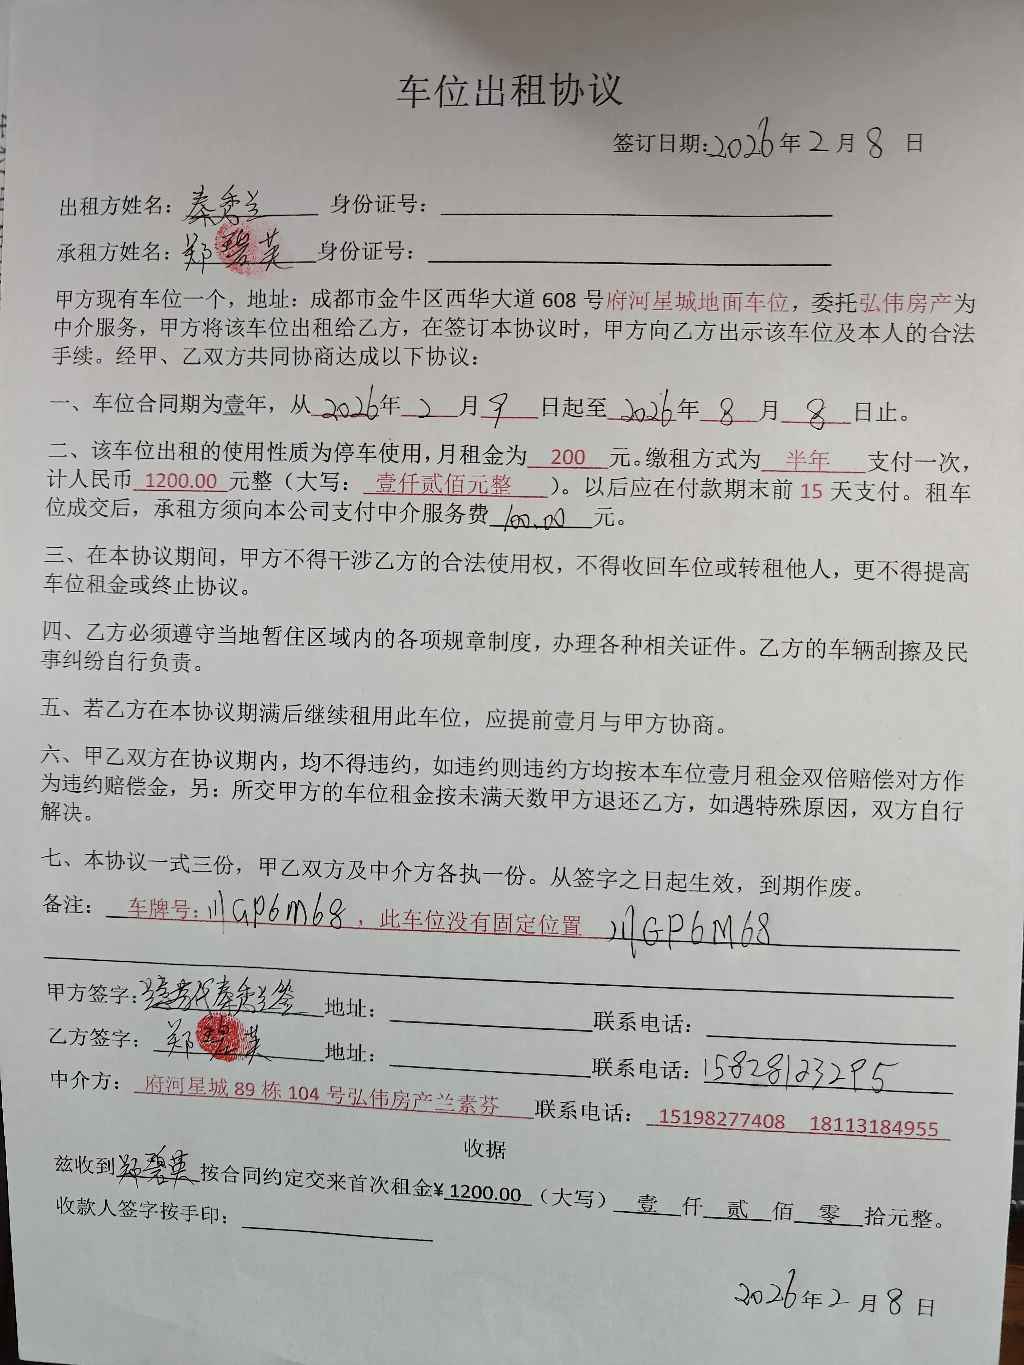 车位出租协议
签订日期:2026年2月8日
出租方姓名:秦秀兰 身份证号:
承租方姓名:郑碧英 身份证号:
甲方现有车位一个，地址：成都市金牛区西华大道608号府河星城地面车位，委托弘伟房产为
中介服务，甲方将该车位出租给乙方，在签订本协议时，甲方向乙方出示该车位及本人的合法
手续。经甲、乙双方共同协商达成以下协议：
一、车位合同期为壹年，从2026年2月9日起至2026年8月8日止。
二、该车位出租的使用性质为停车使用，月租金为200元。缴租方式为半年支付一次，
计人民币1200.00元整（大写：壹仟贰佰元整）。以后应在付款期末前15天支付。租车
位成交后，承租方须向本公司支付中介服务费100.00元。
三、在本协议期间，甲方不得干涉乙方的合法使用权，不得收回车位或转租他人，更不得提高
车位租金或终止协议。
四、乙方必须遵守当地暂住区域内的各项规章制度，办理各种相关证件。乙方的车辆刮擦及民
事纠纷自行负责。
五、若乙方在本协议期满后继续租用此车位，应提前壹月与甲方协商。
六、甲乙双方在协议期内，均不得违约，如违约则违约方均按本车位壹月租金双倍赔偿对方作
为违约赔偿金，另：所交甲方的车位租金按未满天数甲方退还乙方，如遇特殊原因，双方自行
解决。
七、本协议一式三份，甲乙双方及中介方各执一份。从签字之日起生效，到期作废。
备注：车牌号：川GP6M68，此车位没有固定位置 川GP6M68
甲方签字:代秦秀兰签 地址： 联系电话：
乙方签字：郑碧英 地址： 联系电话：15828123295
中介方：府河星城89栋104号弘伟房产兰素芬 联系电话：15198277408 18113184955
收据
兹收到郑碧英按合同约定交来首次租金¥1200.00（大写）壹仟贰佰零拾元整。
收款人签字按手印：
2026年2月8日